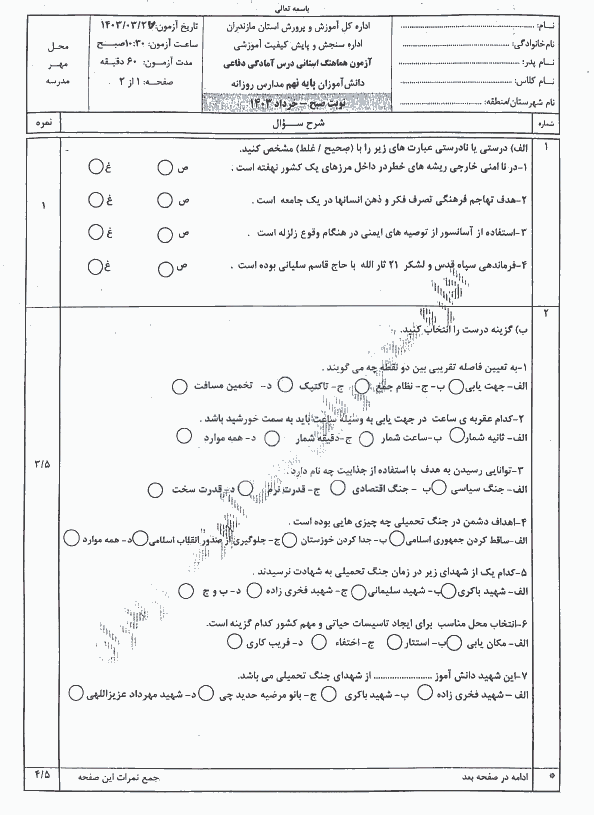 باسمه تعالی
نــام:
نام‌خانوادگی:
نــام پدر:
نــام کلاس:
نام شهرستان/منطقه:
اداره کل آموزش و پرورش استان مازندران
اداره سنجش و پایش کیفیت آموزشی
آزمون هماهنگ استانی درس آمادگی دفاعی
دانش‌آموزان پایه نهم مدارس روزانه
نوبت صبح – خرداد ۱۴۰۳
تاریخ آزمون:۱۴۰۳/۰۳/۲۷
ساعت آزمون: ۱۰:۳۰صبـح
مدت آزمـون: ۶۰ دقیقه
صفحـه: ۱ از ۲
محل
مهـر
مدرسه
شماره شرح ســؤال نمره
۱ الف) درستی یا نادرستی عبارت های زیر را با (صحیح / غلط) مشخص کنید.
۱-در نا امنی خارجی ریشه های خطردر داخل مرزهای یک کشور نهفته است . ص غ
۲-هدف تهاجم فرهنگی تصرف فکر و ذهن انسانها در یک جامعه است . ص غ
۱
۳-استفاده از آسانسور از توصیه های ایمنی در هنگام وقوع زلزله است . ص غ
۴-فرماندهی سپاه قدس و لشکر ۲۱ ثار الله با حاج قاسم سلیانی بوده است . ص غ
۲
ب) گزینه درست را انتخاب کنید.
۱-به تعیین فاصله تقریبی بین دو نقطه چه می گویند .
الف- جهت یابی ب-ج- نظام جمع ج- تاکتیک د- تخمین مسافت
۲-کدام عقربه ی ساعت در جهت یابی به وسیله ساعت باید به سمت خورشید باشد .
الف- ثانیه شمار ب-ساعت شمار ج-دقیقه شمار د- همه موارد
۳/۵
۳-توانایی رسیدن به هدف با استفاده از جذابیت چه نام دارد.
الف- جنگ سیاسی ب - جنگ اقتصادی ج- قدرت نرم د- قدرت سخت
۴-اهداف دشمن در جنگ تحمیلی چه چیزی هایی بوده است .
الف-ساقط کردن جمهوری اسلامی ب- جدا کردن خوزستان ج- جلوگیری از صدور انقلاب اسلامی د- همه موارد
۵-کدام یک از شهدای زیر در زمان جنگ تحمیلی به شهادت نرسیدند .
الف- شهید باکری ب- شهید سلیمانی ج- شهید فخری زاده د- ب و ج
۶-انتخاب محل مناسب برای ایجاد تاسیسات حیاتی و مهم کشور کدام گزینه است.
الف- مکان یابی ب- استتار ج- اختفاء د- فریب کاری
۷-این شهید دانش آموز ........................ از شهدای جنگ تحمیلی می باشد.
الف – شهید فخری زاده ب- شهید باکری ج- بانو مرضیه حدید چی د- شهید مهرداد عزیزاللهی
* ادامه در صفحه بعد جمع نمرات این صفحه ۴/۵